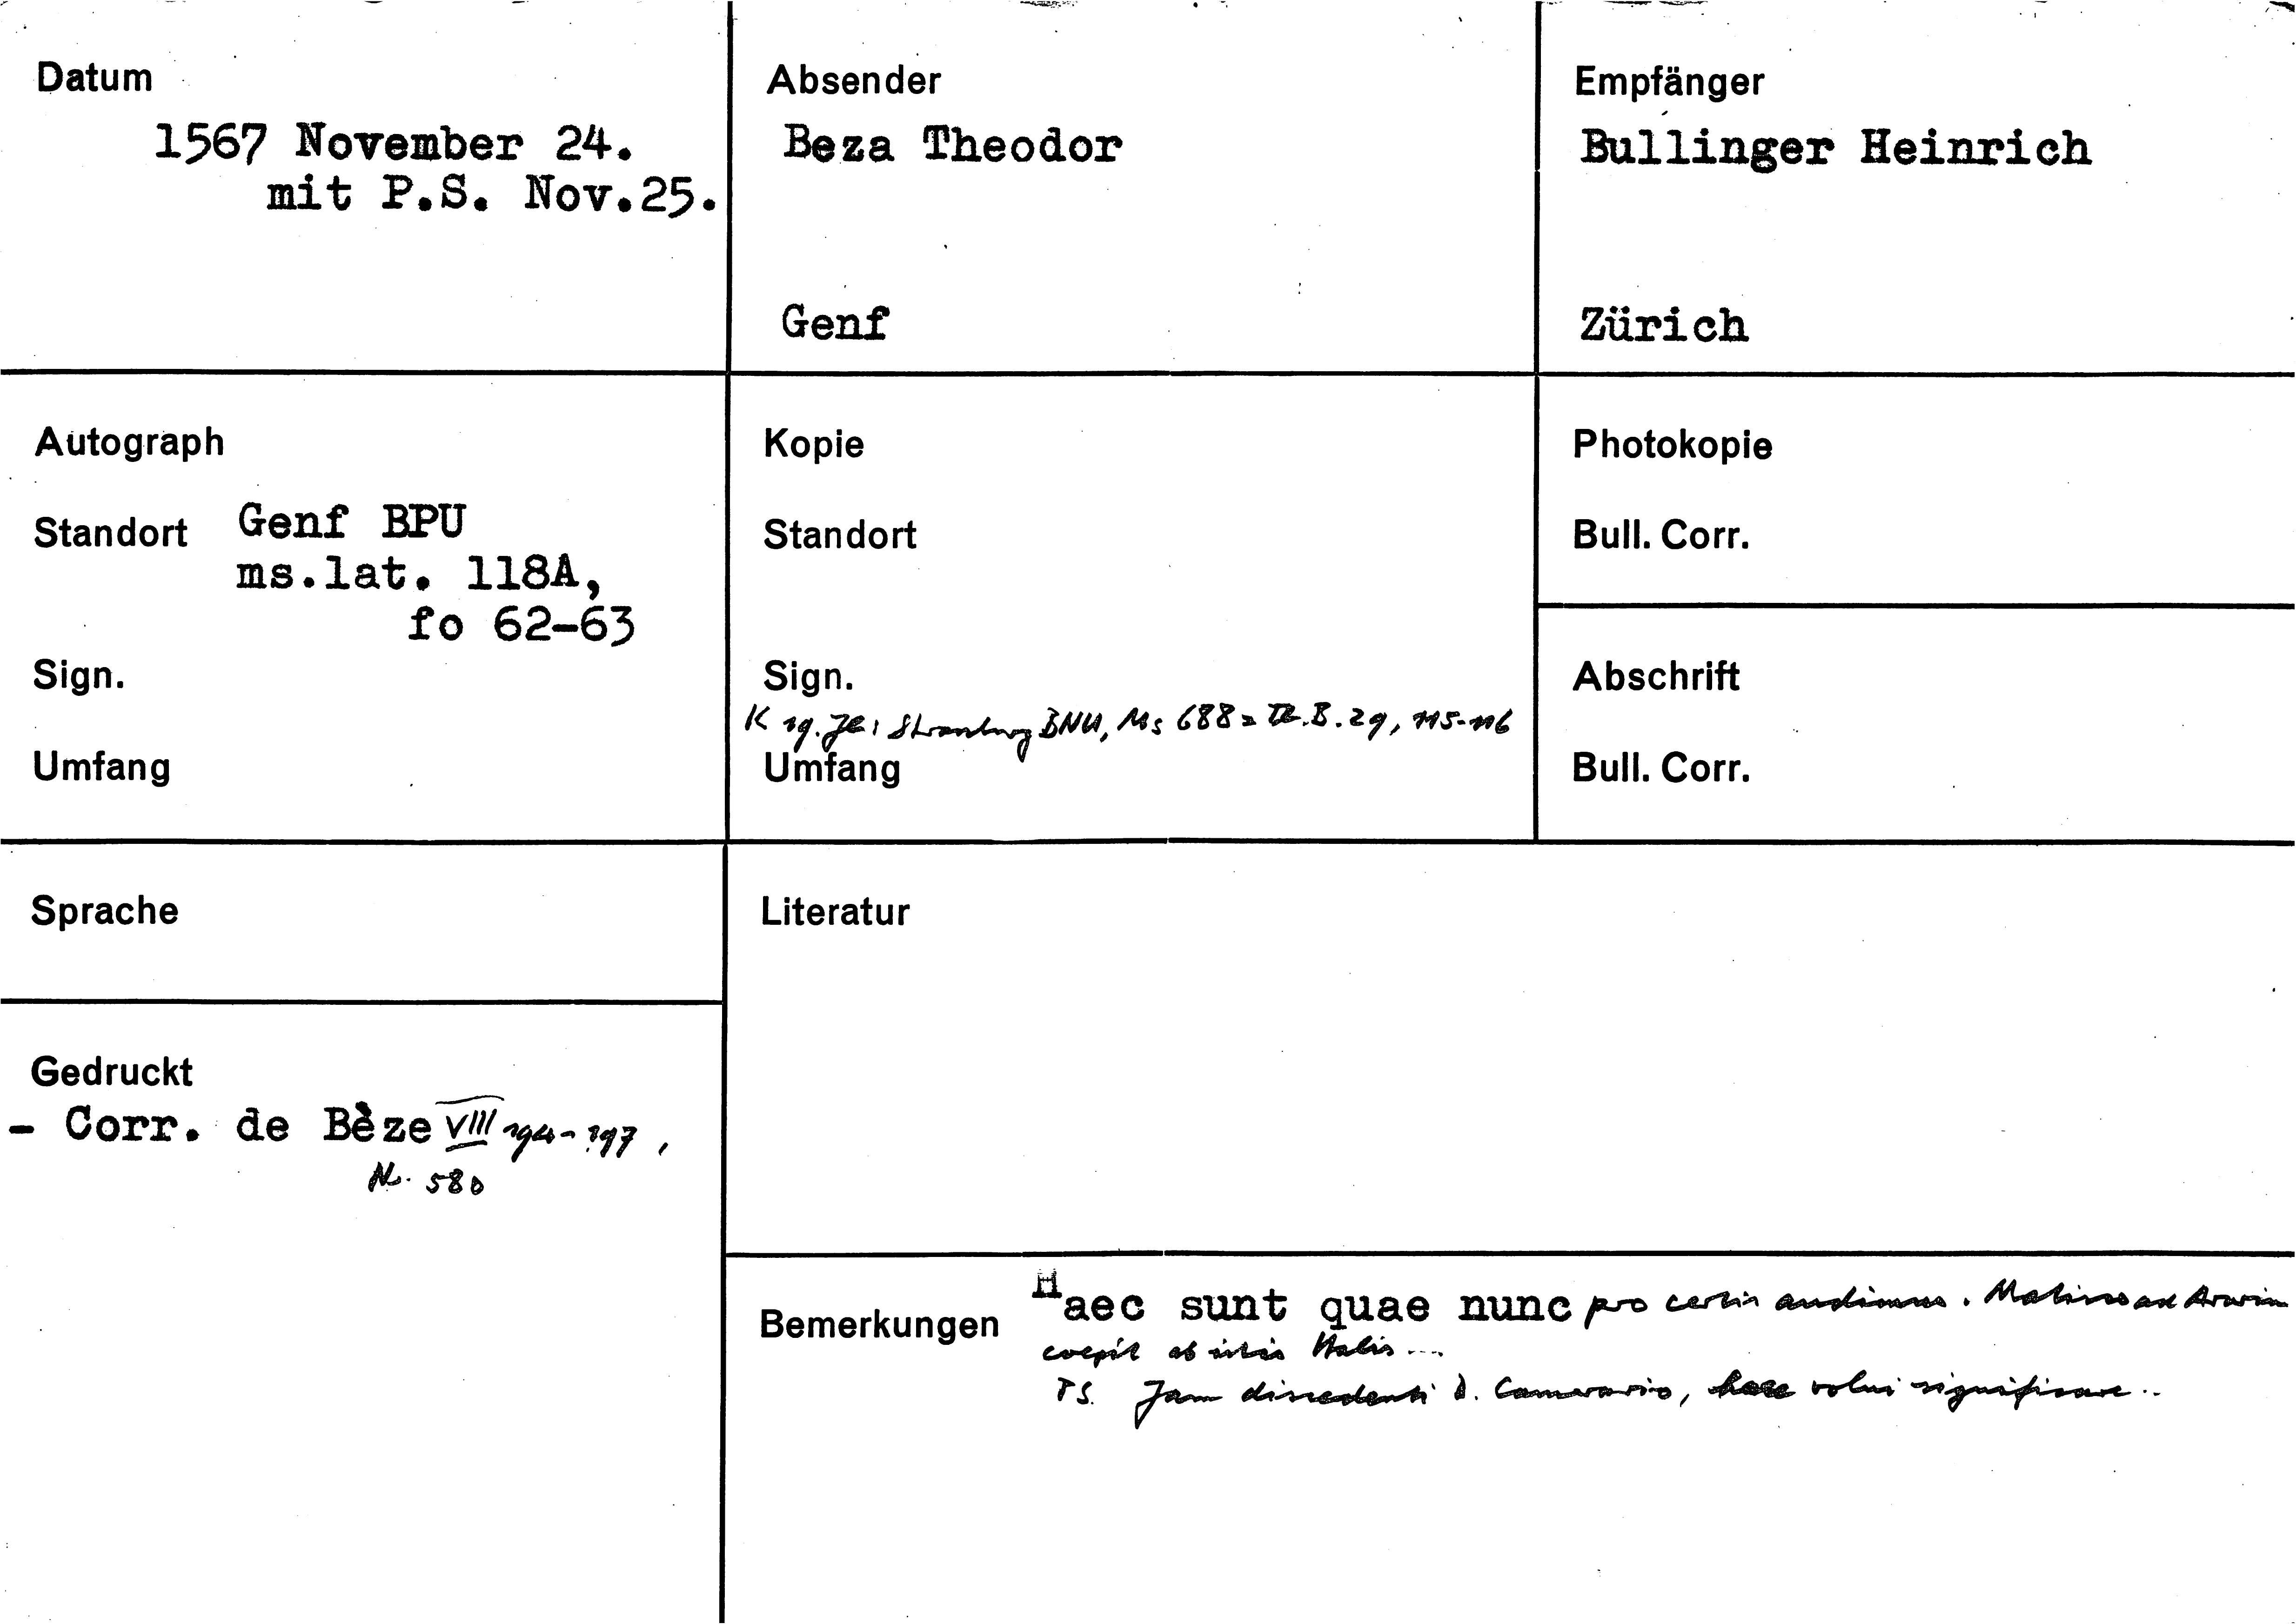 Datum
1567 November 24.
mit P.S. Nov.25.
Absender
Beza Theodor
Genf
Empfänger
Bullinger Heinrich
Zürich
Autograph
Standort Genf BPU
ms.lat. 118A,
fo 62-63
Sign.
Umfang
Kopie
Standort
Sign.
K Strassburg BNU, Ms 688 = Th.B. 29, 115-116
Umfang
Photokopie
Bull. Corr.
Abschrift
Bull. Corr.
Sprache
Gedruckt
- Corr. de Bèze VIII 194-197,
Nr. 580
Literatur
Bemerkungen Haec sunt quae nunc pro certis audimus.
coepit ab istis Italis ...
PS. Jam discedenti D. Camerario, haec volui significare ..